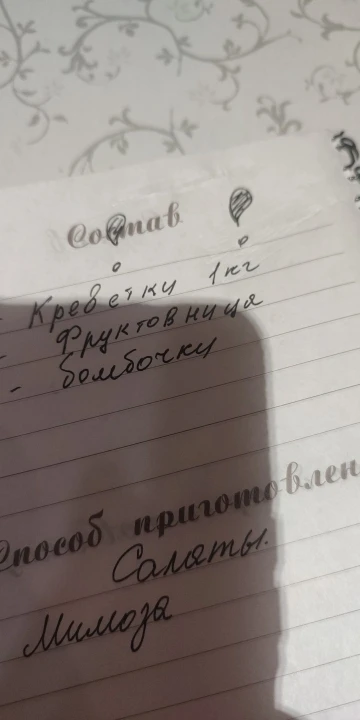 Состав
- Креветки 1кг
- Фруктовница
- бомбочку
Способ приготовлен
Салаты.
Мимоза